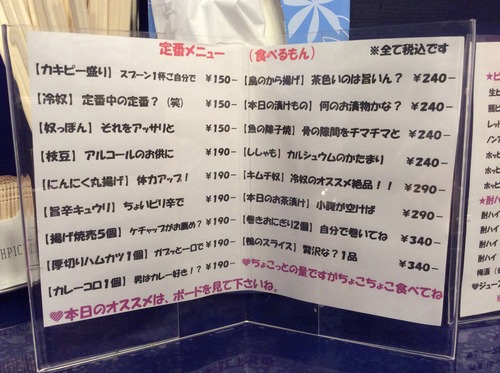 定番メニュー
【カキピー盛り】 スプーン1杯ご自分で ¥150-
【冷奴】 定番中の定番?(笑) ¥150-
【奴っぽん】 それをアッサリと ¥150-
【枝豆】 アルコールのお供に ¥190-
【にんにく丸揚げ】 体力アップ! ¥190-
【旨辛キュウリ】 ちょいピリ辛で ¥190-
【揚げ焼売5個】 ケチャップがお薦め? ¥190-
【厚切りハムカツ1個】 ガブッと一口で ¥190-
【カレーコロ1個】 男はカレー好き!? ¥190-
♥本日のオススメは、ボードを見て下さいね。
(食べるもん) ※全て税込です
【鳥のから揚げ】 茶色いのは旨いん? ¥240-
【本日の漬けもの】 何のお漬物かな? ¥240-
【魚の障子焼】 骨の隙間をチマチマと ¥240-
【ししゃも】 カルシュウムのかたまり ¥240-
【キムチ奴】 冷奴のオススメ絶品!! ¥290-
【本日のお茶漬け】 小腹が空けば ¥290-
【巻きおにぎり2個】 自分で巻いてね ¥340-
【鴨のスライス】 贅沢な?1品 ¥340-
♥ちょこっとの量ですがちょこちょこ食べてね
生ビ
レッ
ノンア
ホッピ
ホッピ
★酎ハ
酎ハイ
酎ハイ
酎ハイ
酎ハイ
梅酒
♥ジュー
HPIC